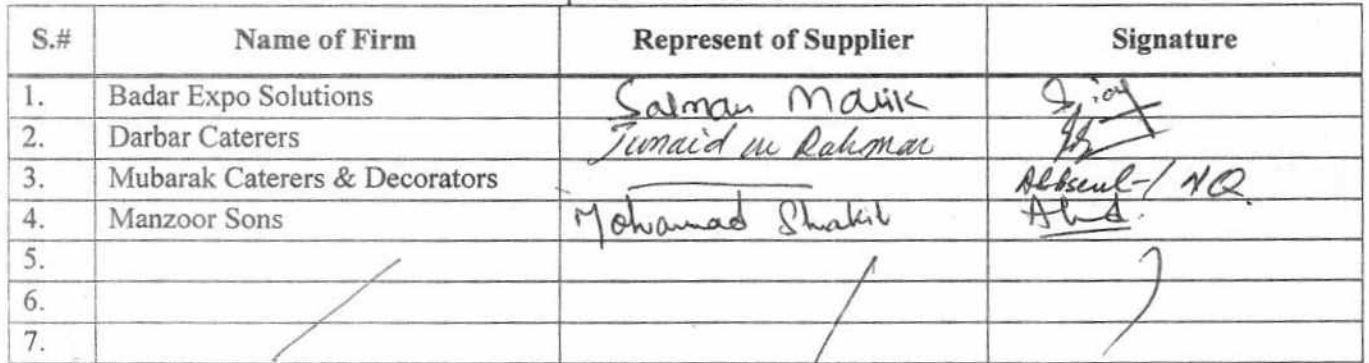 S.# Name of Firm Represent of Supplier Signature
1. Badar Expo Solutions Salman Malik
2. Darbar Caterers Junaid ur Rahman
3. Mubarak Caterers & Decorators Absent-/ NQ
4. Manzoor Sons Mohammad Shakil
5.
6.
7.